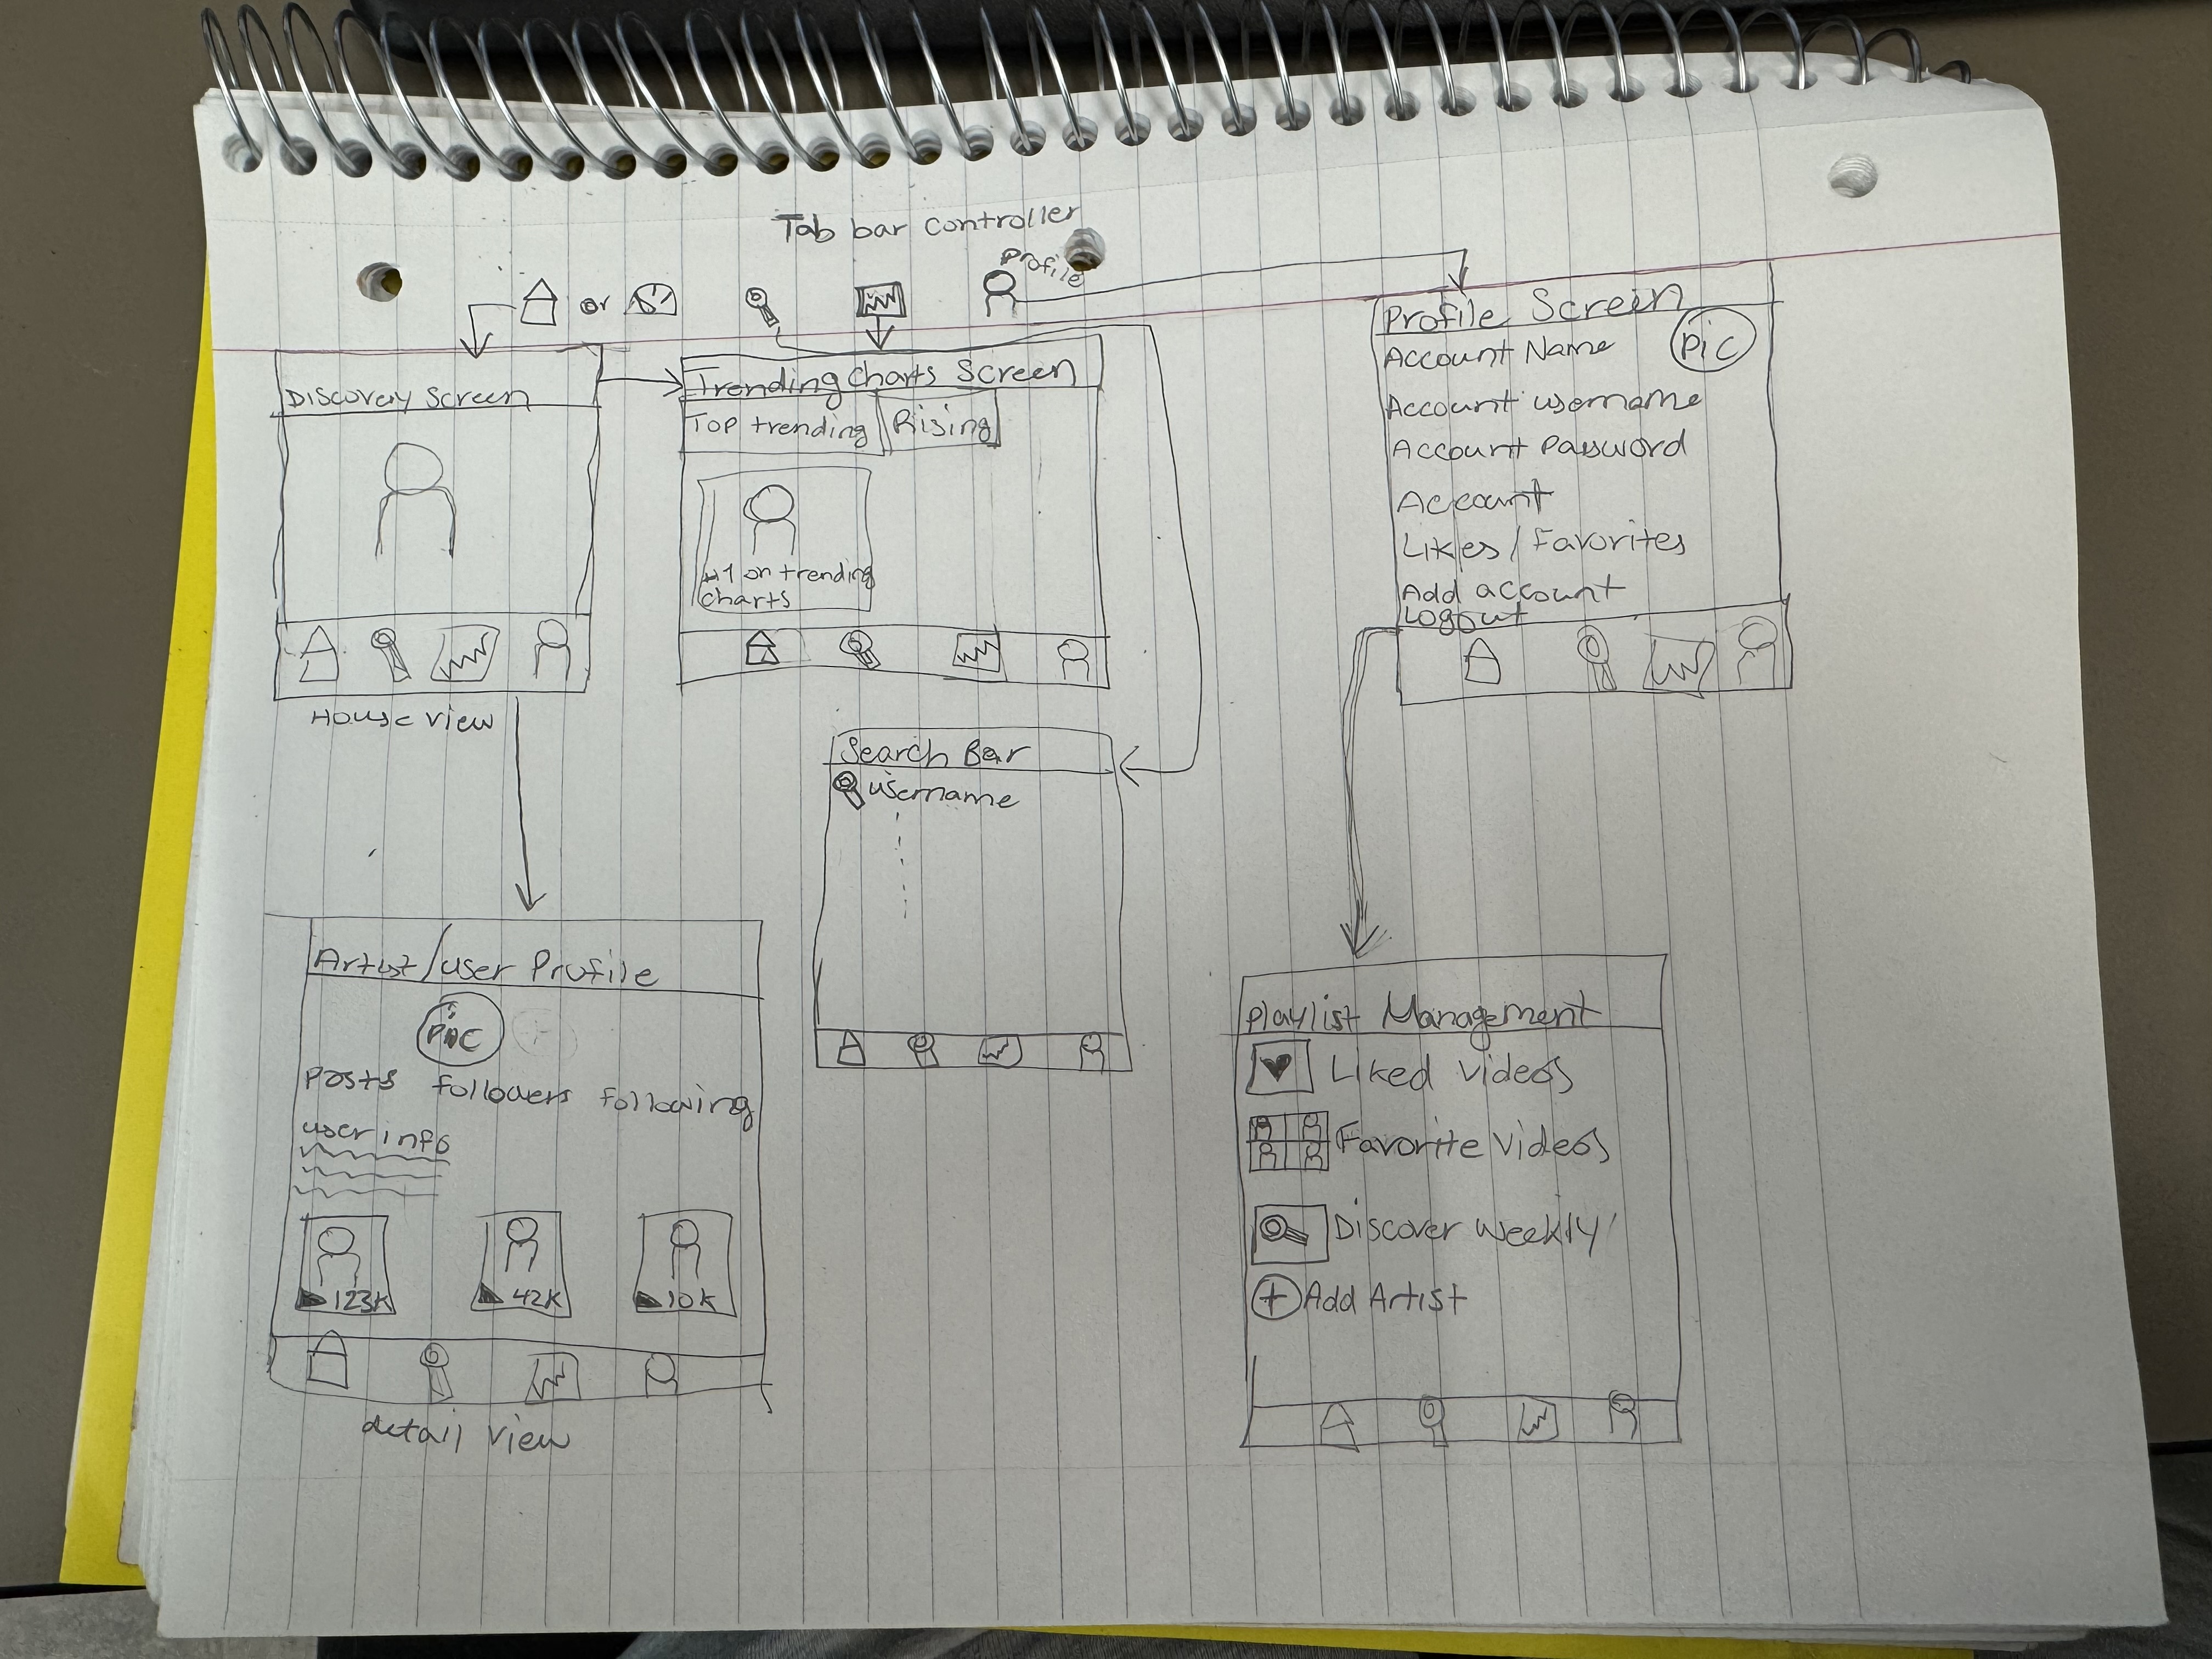 Tab bar controller
or
Profile
Discovery Screen
House view
Trending Charts Screen
Top trending
Rising
#1 on trending
charts
Profile Screen
Pic
Account Name
Account username
Account Password
Account
Likes / Favorites
Add account
Logout
Search Bar
username
Artist/user Profile
Pic
Posts followers following
user info
123K
42K
10K
detail view
Playlist Management
Liked videos
Favorite videos
Discover Weekly
+ Add Artist